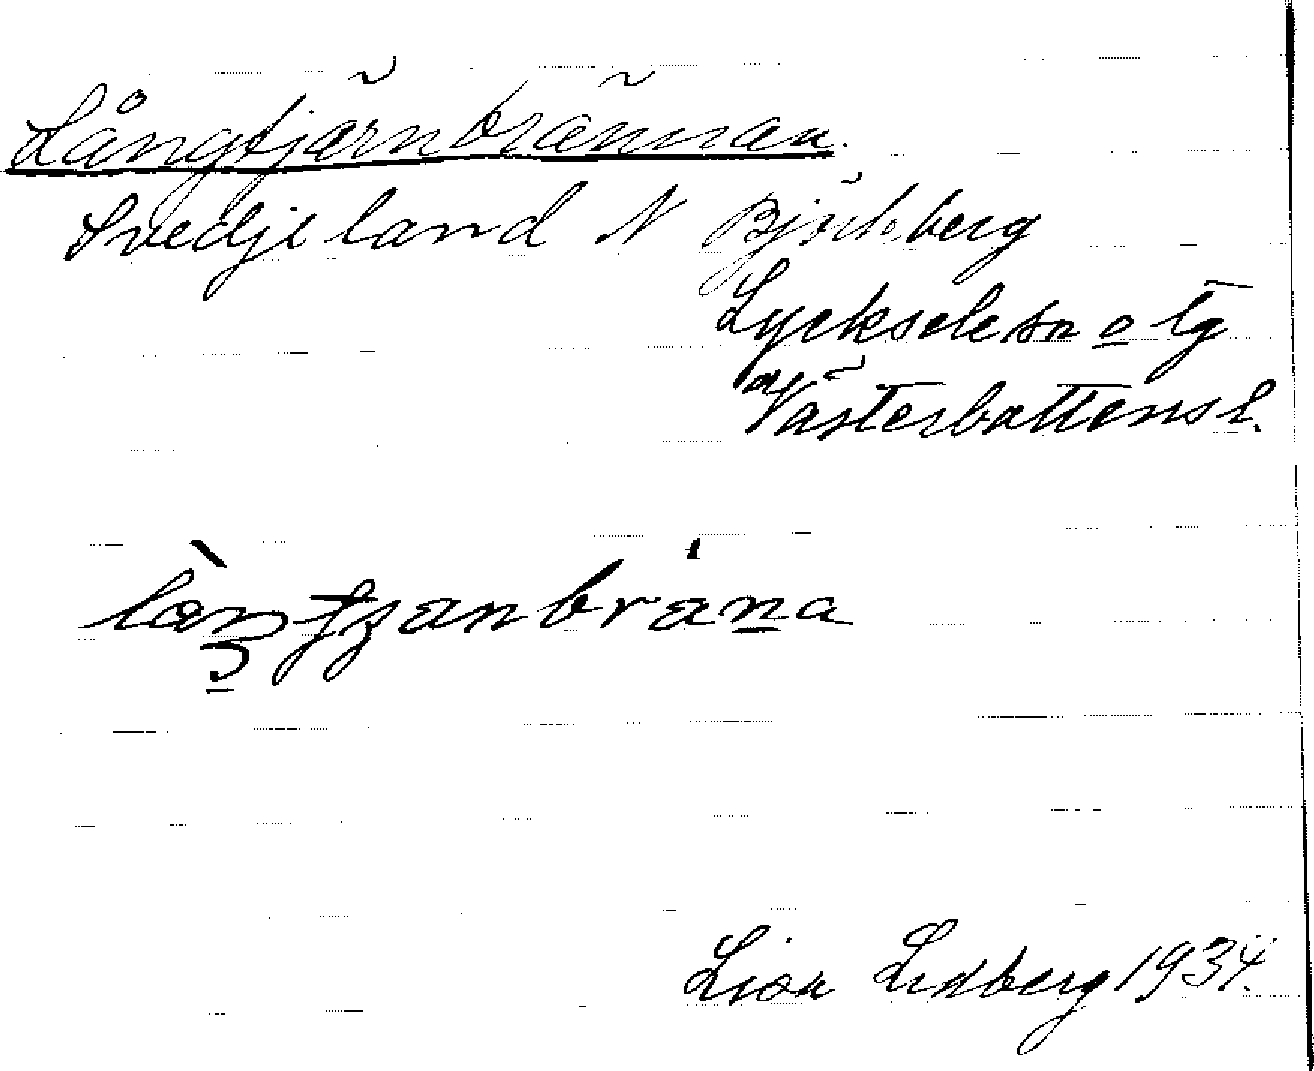 Långtjärnbrännan.
Svedjeland N Björkberg
Lycksele sn o tg
Västerbottens l.
Lisa Lidberg 1934.